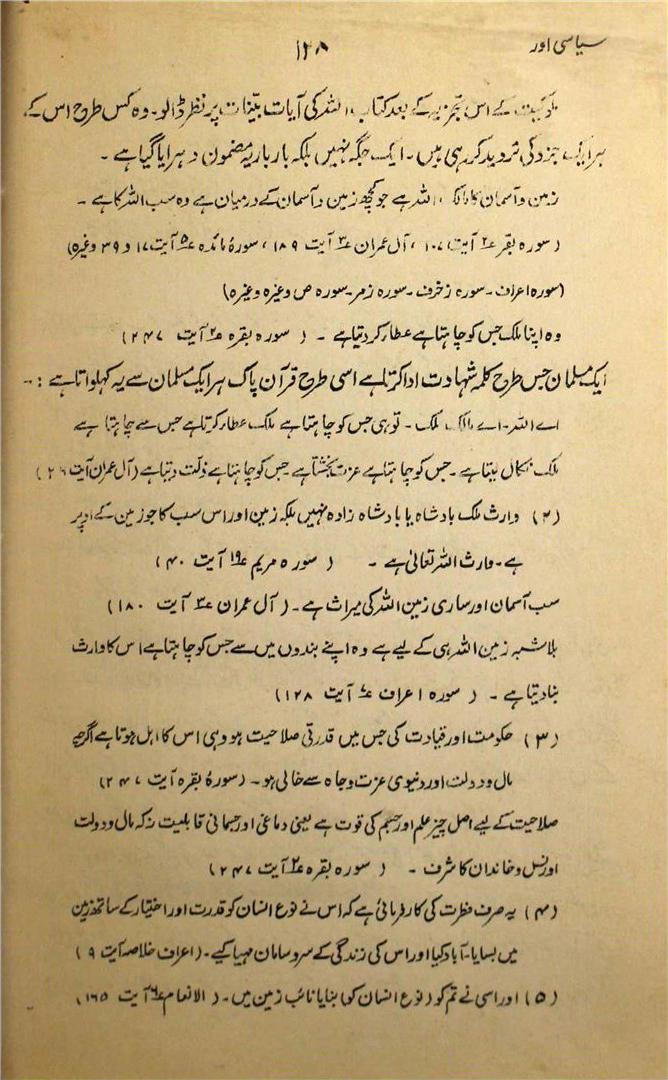 سیاسی اور
۱۲۸
کے اس تجزیہ کے بعد کتاب اللہ کی آیات بینات پر نظر ڈالو۔ وہ کس طرح اس کے
ہر ایک جزء کی تردید کر رہی ہیں۔ ایک جگہ نہیں بلکہ بار بار یہ مضمون دہرایا گیا ہے۔
زمین و آسمان کا مالک اللہ ہے جو کچھ زمین و آسمان کے درمیان ہے وہ سب اللہ کا ہے۔
(سورہ بقرہ ع۲ آیت ۱۰۷، آل عمران ع۳ آیت ۱۸۹، سورۂ مائدہ ع۵ آیت ۱۷ و ۳۹ وغیرہ)
(سورہ اعراف۔ سورہ زخرف۔ سورہ زمر۔ سورہ ص وغیرہ وغیرہ)
وہ اپنا ملک جس کو چاہتا ہے عطا کر دیتا ہے۔ (سورہ بقرہ ع۲ آیت ۲۴۷)
ایک مسلمان جس طرح کلمہ شہادت ادا کرتا ہے اسی طرح قرآن پاک ہر ایک مسلمان سے یہ کہلواتا ہے :۔
اے اللہ۔ اے مالک ملک۔ تو ہی جس کو چاہتا ہے ملک عطا کرتا ہے جس سے چاہتا ہے
ملک نکال لیتا ہے۔ جس کو چاہتا ہے عزت بخشتا ہے جس کو چاہتا ہے ذلت دیتا ہے (آل عمران آیت ۲۶)
(۲) وارث ملک بادشاہ یا بادشاہ زادہ نہیں بلکہ زمین اور اس سب کا جو زمین کے اوپر
ہے۔ وارث اللہ تعالیٰ ہے۔ (سورہ مریم ع۱۹ آیت ۴۰)
سب آسمان اور ساری زمین اللہ کی میراث ہے۔ (آل عمران ع۳ آیت ۱۸۰)
بلا شبہ زمین اللہ ہی کے لیے ہے وہ اپنے بندوں میں سے جس کو چاہتا ہے اس کا وارث
بنا دیتا ہے۔ (سورہ اعراف ع۷ آیت ۱۲۸)
(۳) حکومت اور قیادت کی جس میں قدرتی صلاحیت ہو وہی اس کا اہل ہوتا ہے اگرچہ
مال و دولت اور دنیوی عزت و جاہ سے خالی ہو۔ (سورۂ بقرہ آیت ۲۴۷)
صلاحیت کے لیے اصل چیز علم اور جسم کی قوت ہے یعنی دماغی اور جسمانی قابلیت نہ کہ مال و دولت
اور نسل و خاندان کا شرف۔ (سورہ بقرہ ع۲ آیت ۲۴۷)
(۴) یہ صرف فطرت کی کارفرمائی ہے کہ اس نے نوع انسان کو قدرت اور اختیار کے ساتھ زمین
میں بسایا۔ آباد کیا اور اس کی زندگی کے سر و سامان مہیا کیے۔ (اعراف خلاصہ آیت ۹)
(۵) اور اسی نے تم کو (نوع انسان کو) بنایا نائب زمین میں۔ (الانعام ع۶ آیت ۱۶۵)